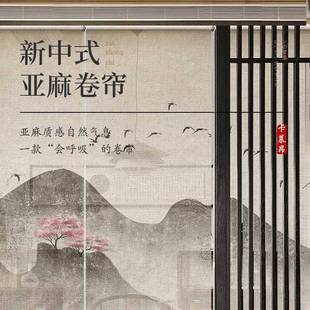 新中式
亚麻卷帘
亚麻质感自然气息
一款“会呼吸”的卷帘